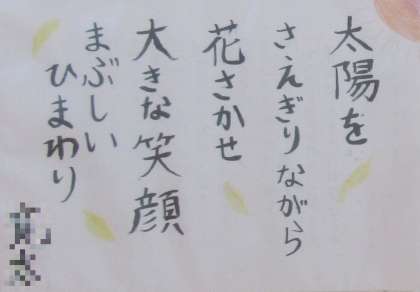 太陽を
さえぎりながら
花さかせ
大きな笑顔
まぶしい
ひまわり